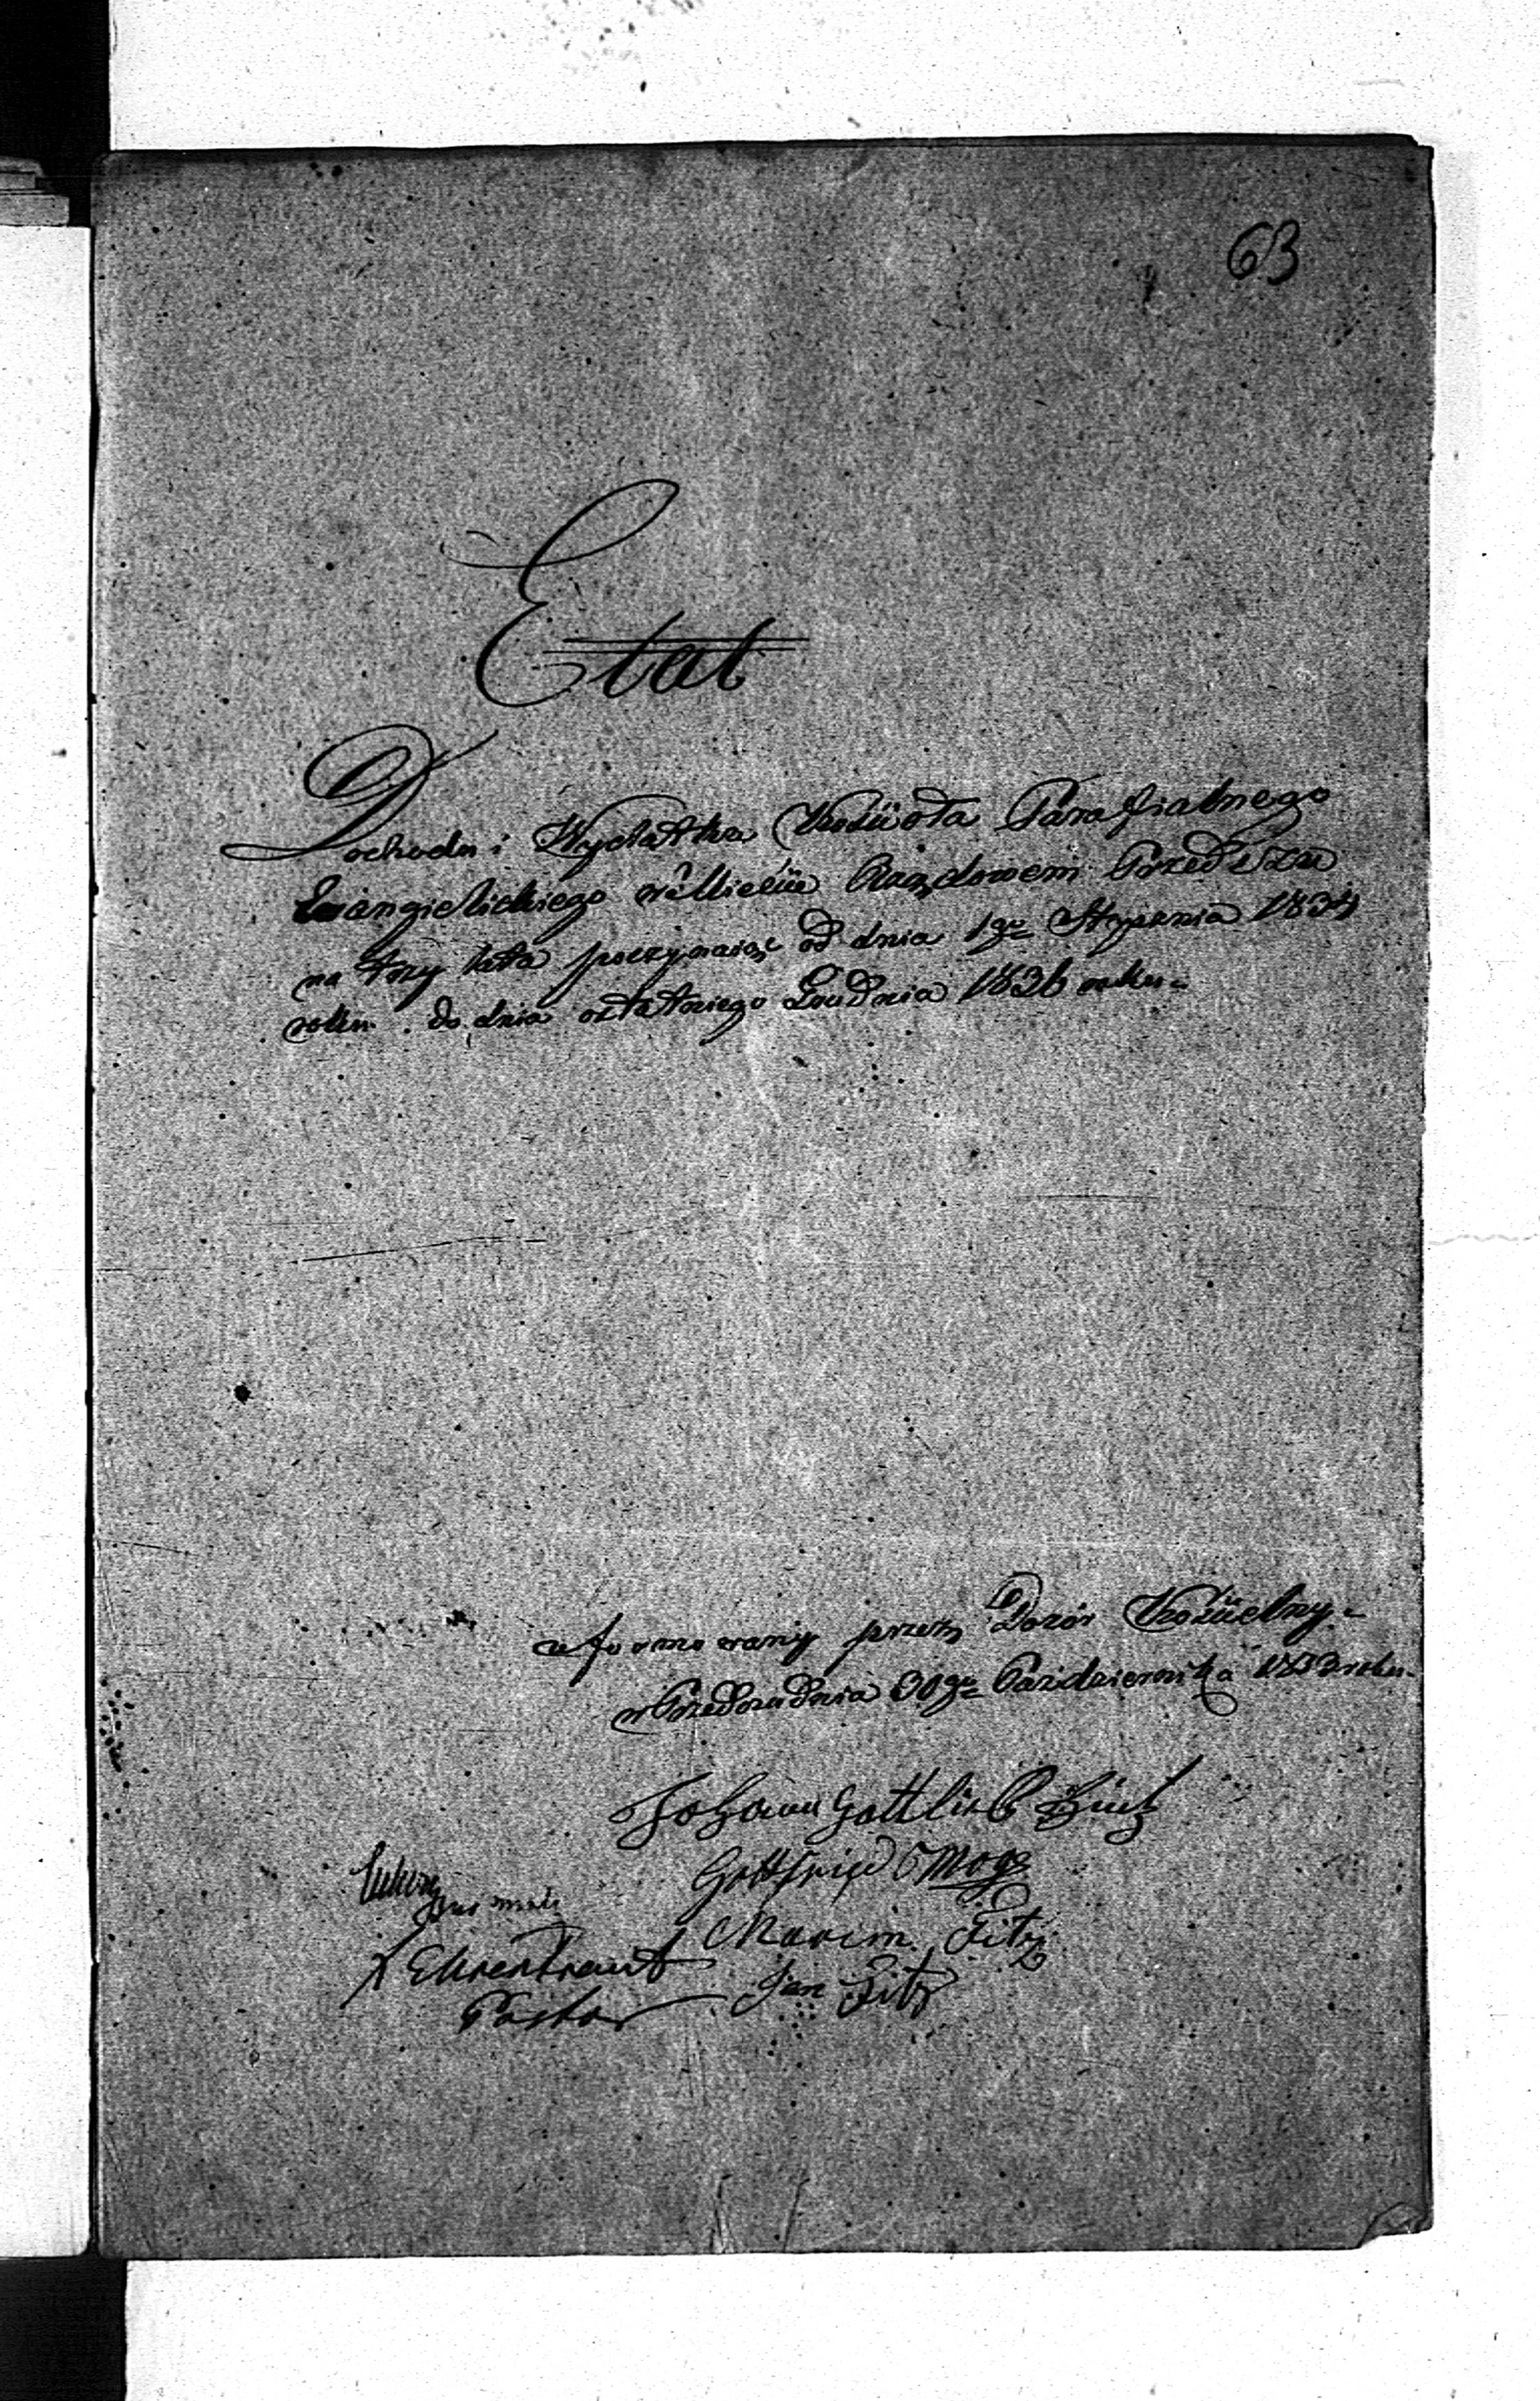 63
Etat
Dochodu i Wydatku Kościoła Parafialnego
Ewangielickiego w Mieście Rządowem Przedczu
na trzy lata poczynaiąc od dnia 1go Stycznia 1834
roku do dnia ostatniego Grudnia 1836 roku
uformowany przez Dozór Kościelny
w Przedczu dnia 30go Października 1833 roku
Johann Gottlieb
Gottfried
Marcin Fitz
Ehrentraut
Jan Fitz
Pastor